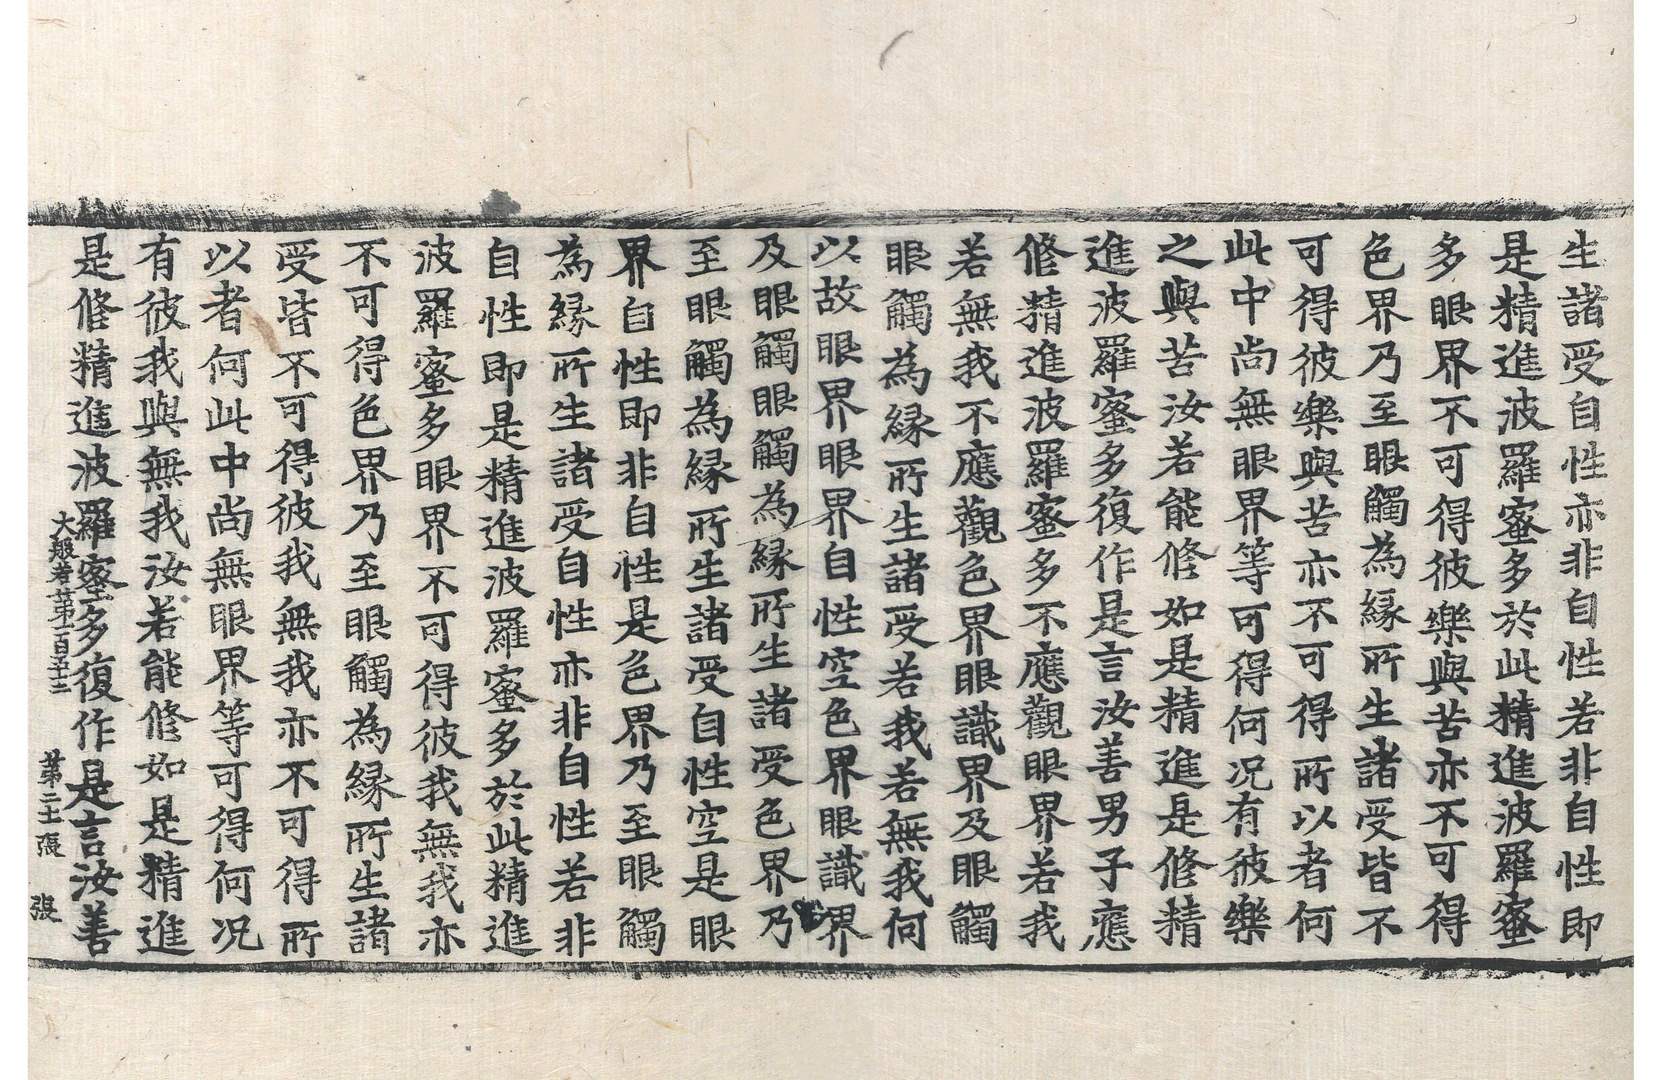 生諸受自性亦非自性若非自性即
是精進波羅蜜多於此精進波羅蜜
多眼界不可得彼樂與苦亦不可得
色界乃至眼觸為縁所生諸受皆不
可得彼樂與苦亦不可得所以者何
此中尚無眼界等可得何况有彼樂
之與苦汝若能修如是精進是修精
進波羅蜜多復作是言汝善男子應
修精進波羅蜜多不應觀眼界若我
若無我不應觀色界眼識界及眼觸
眼觸為縁所生諸受若我若無我何
以故眼界眼界自性空色界眼識界
及眼觸眼觸為縁所生諸受色界乃
至眼觸為縁所生諸受自性空是眼
界自性即非自性是色界乃至眼觸
為縁所生諸受自性亦非自性若非
自性即是精進波羅蜜多於此精進
波羅蜜多眼界不可得彼我無我亦
不可得色界乃至眼觸為縁所生諸
受皆不可得彼我無我亦不可得所
以者何此中尚無眼界等可得何况
有彼我與無我汝若能修如是精進
是修精進波羅蜜多復作是言汝善
大般若苐一百五十三 苐二十一張 張